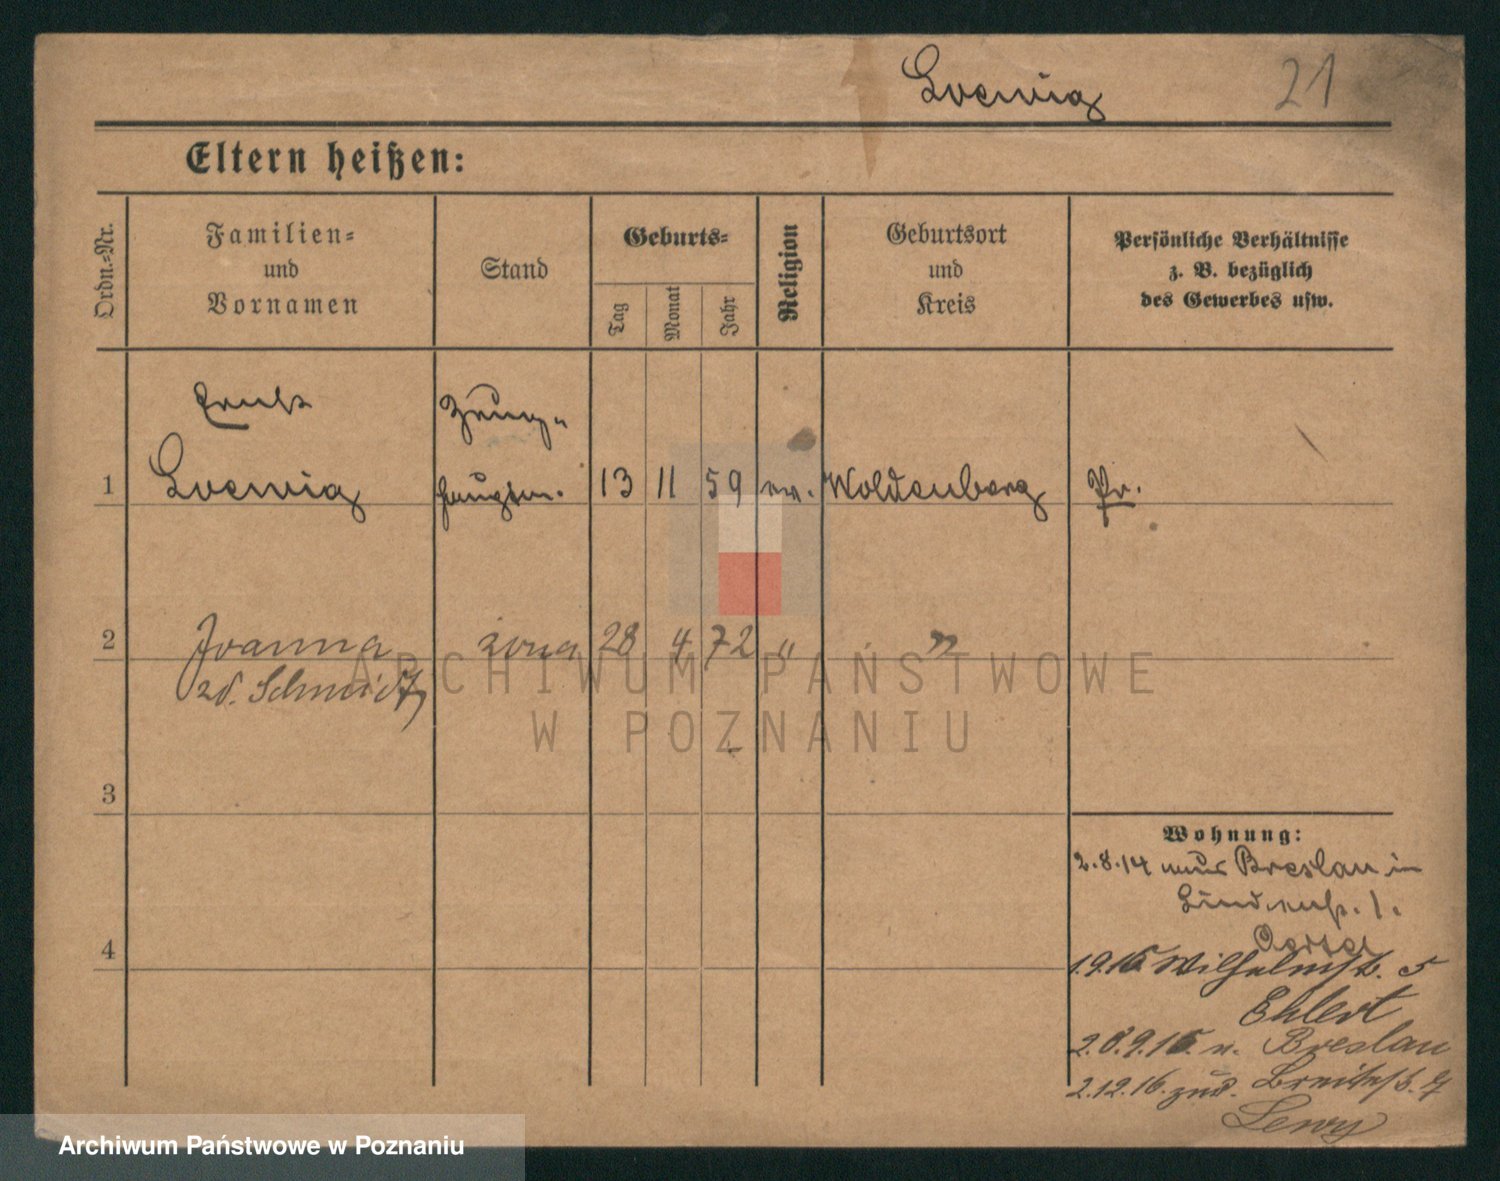 Loewig 21
Eltern heißen:
Ordn.-Nr.
Familien-
und
Vornamen
Stand
Geburts-
Tag
Monat
Jahr
Religion
Geburtsort
und
Kreis
Persönliche Verhältnisse
z. B. bezüglich
des Gewerbes usw.
Ernst Zeug-
1 Loewig hauptm. 13 11 59 ev. Woldenberg Pr.
2 Joanna żona 28 4 72 " "
zd. Schmidt
3
Wohnung:
2.8.14 nach Breslau
Lindenstr. 1.
4
1.9.15 Wilhelmstr. 5
Ehlert
28.9.15 n. Breslau
2.12.16 zur. Breitestr.
Lewy
ARCHIWUM PAŃSTWOWE
W POZNANIU
Archiwum Państwowe w Poznaniu